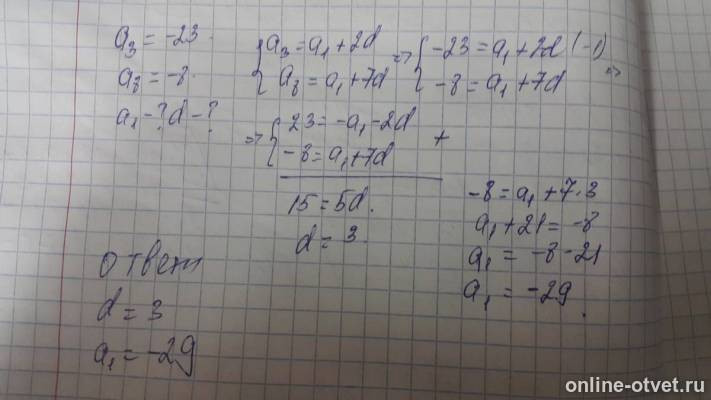 a₃ = -23.
a₈ = -8.
a₁ - ? d - ?
{ a₃ = a₁ + 2d
a₈ = a₁ + 7d
=> { -23 = a₁ + 2d (-1)
-8 = a₁ + 7d =>
=> { 23 = -a₁ - 2d
-8 = a₁ + 7d +
15 = 5d.
d = 3.
-8 = a₁ + 7·3
a₁ + 21 = -8
a₁ = -8 - 21
a₁ = -29.
Ответ
d = 3
a₁ = -29
online-otvet.ru